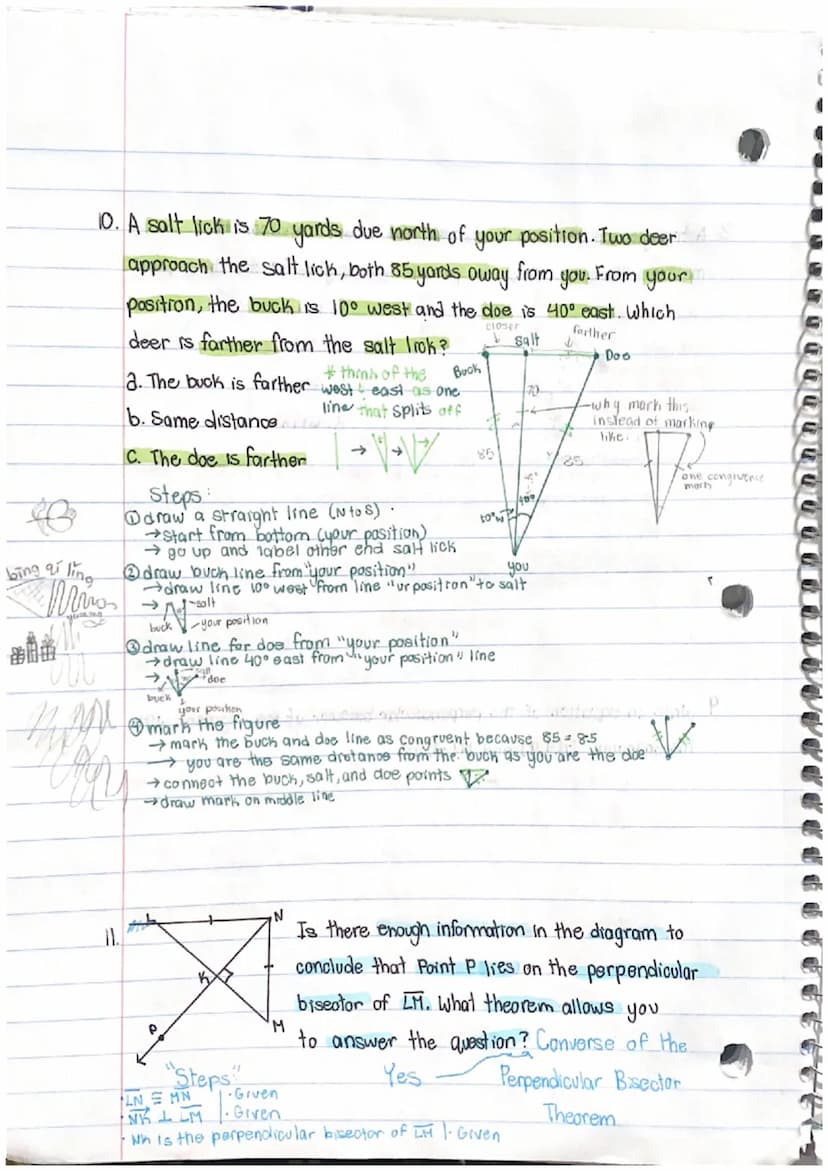 10. A salt lick is 70 yards due north of your position. Two deer
approach the salt lick, both 85 yards away from you. From your
position, the buck is 10° west and the doe is 40° east. Which
deer is farther from the salt lick?
closer
salt
farther
Doe
Buck
70
85
85
40°
10°W
you
why mark this
instead of marking
like:
one congruence
mark
a. The buck is farther
* think of the
west & east as one
line that splits off
b. Same distance
c. The doe is farther
Steps:
① draw a straight line (N to S).
→ start from bottom (your position)
→ go up and label other end salt lick
② draw buck line from "your position"
→ draw line 10° west from line "ur position" to salt
→
salt
buck
your position
bing qi ling
③ draw line for doe from "your position"
→ draw line 40° east from "your position" line
→
salt
doe
buck
your position
④ mark the figure
→ mark the buck and doe line as congruent because 85 = 85
→ you are the same distance from the buck as you are the doe
→ connect the buck, salt, and doe points
→ draw mark on middle line
11.
L
N
K
P
M
Is there enough information in the diagram to
conclude that Point P lies on the perpendicular
bisector of LM. What theorem allows you
to answer the question? Converse of the
Yes
Perpendicular Bisector
Theorem
"Steps"
· LN ≅ MN | · Given
· NK ⊥ LM | · Given
· Nk is the perpendicular bisector of LM | · Given